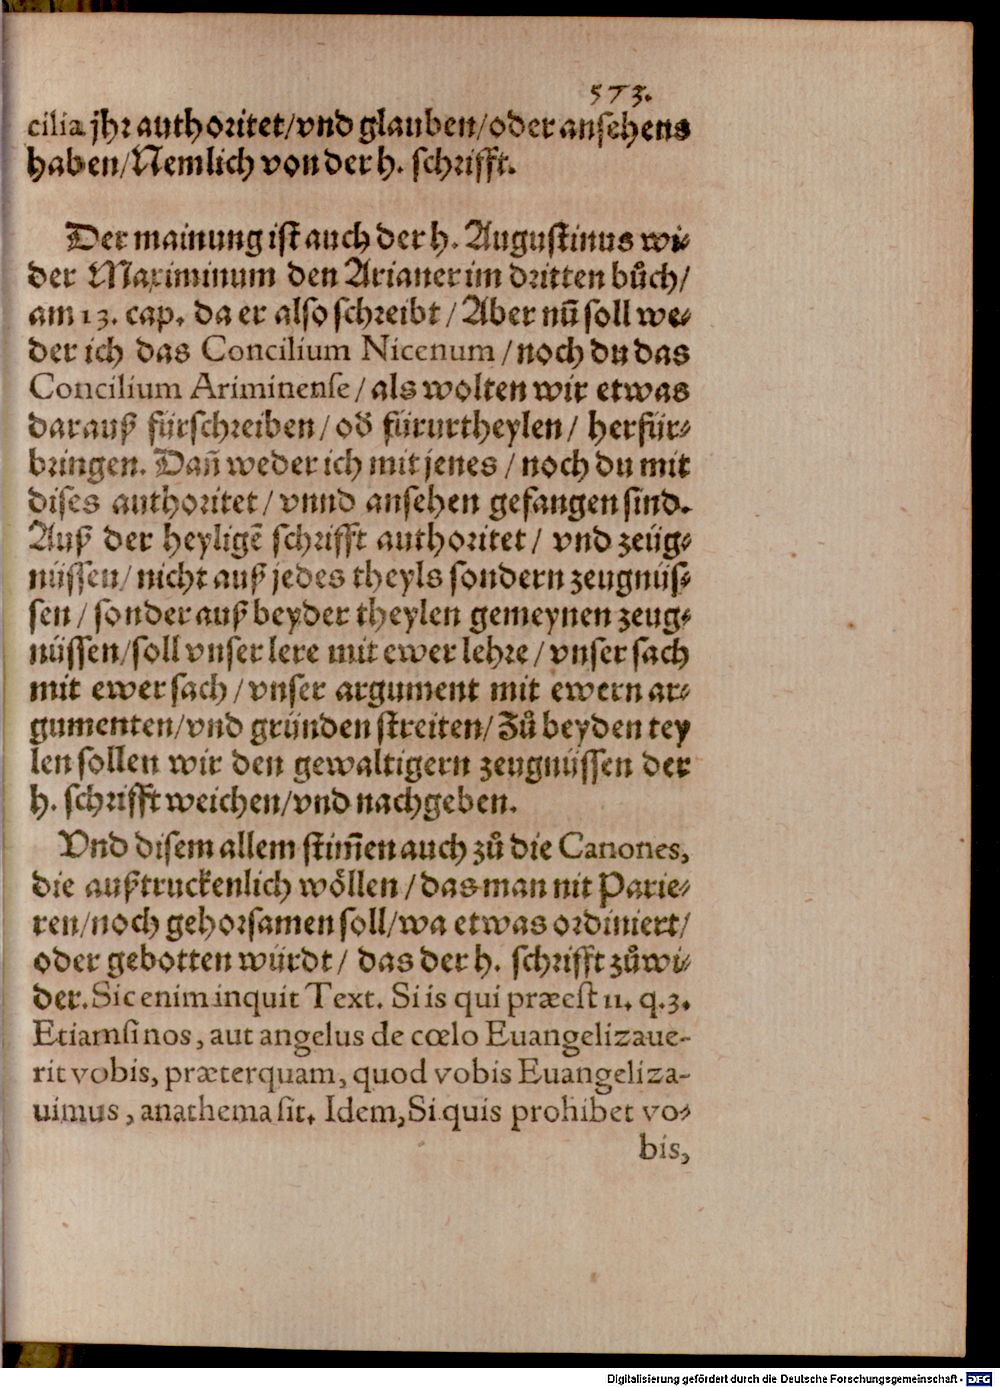 573.
cilia jhr authoritet/vnd glauben/oder ansehens
haben/Nemlich von der h. schrifft.
Der mainung ist auch der h. Augustinus wi-
der Maximinum den Arianer im dritten bůch/
am 13. cap. da er also schreibt/Aber nū soll we-
der ich das Concilium Nicenum/noch du das
Concilium Ariminense/als wolten wir etwas
darauß fürschreiben/od̄ fürurtheylen/ herfür-
bringen. Dañ weder ich mit jenes/noch du mit
dises authoritet/vnnd ansehen gefangen sind.
Auß der heyligē schrifft authoritet/ vnd zeüg-
nüssen/nicht auß jedes theyls sondern zeugnüs-
sen/sonder auß beyder theylen gemeynen zeug-
nüssen/soll vnser lere mit ewer lehre/vnser sach
mit ewer sach/vnser argument mit ewern ar-
gumenten/vnd gründen streiten/Zů beyden tey
len sollen wir den gewaltigern zeugnüssen der
h. schrifft weichen/vnd nachgeben.
Vnd disem allem stim̄en auch zů die Canones,
die außtruckenlich wöllen/das man nit Parie-
ren/noch gehorsamen soll/wa etwas ordiniert/
oder gebotten würdt/ das der h. schrifft zůwi-
der. Sic enim inquit Text. Si is qui præest 11. q.3.
Etiamsi nos, aut angelus de cœlo Euangelizaue-
rit vobis, præterquam, quod vobis Euangeliza-
uimus, anathema sit. Idem, Si quis prohibet vo-
bis,
Digitalisierung gefördert durch die Deutsche Forschungsgemeinschaft - DFG